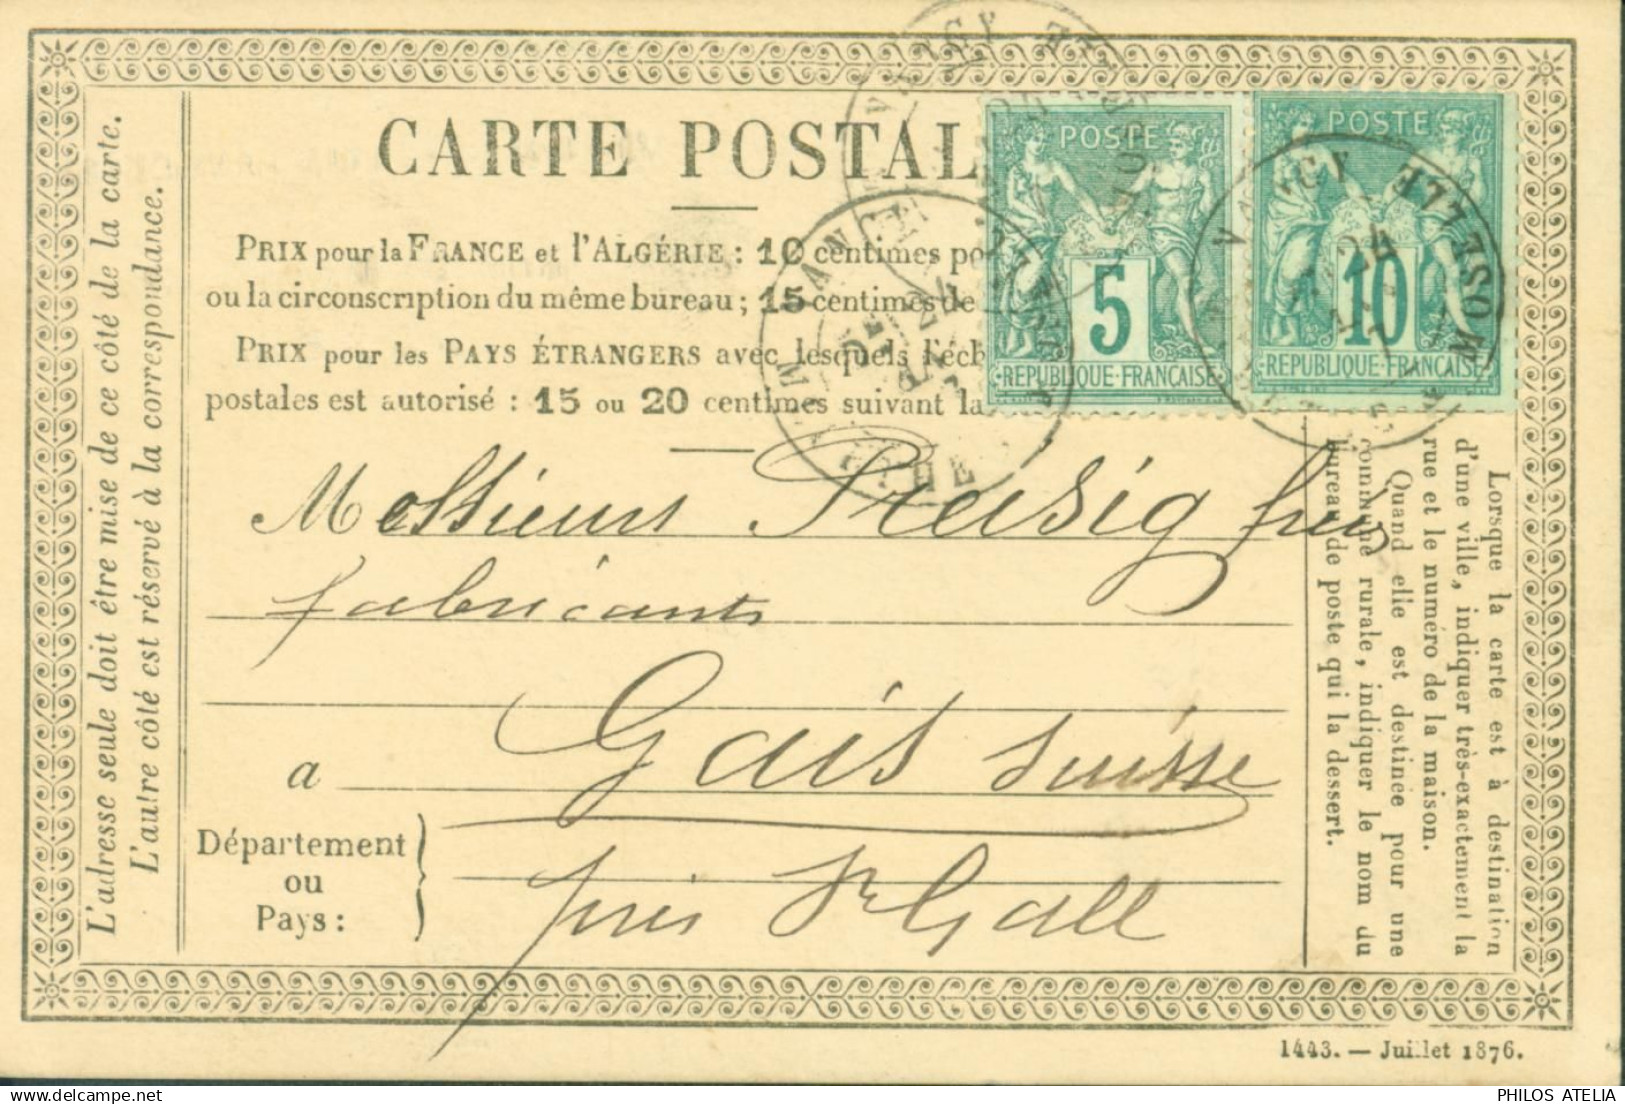 CARTE POSTAL
PRIX pour la FRANCE et l'ALGÉRIE : 10 centimes po
ou la circonscription du même bureau ; 15 centimes de
PRIX pour les PAYS ÉTRANGERS avec lesquels l'éch
postales est autorisé : 15 ou 20 centimes suivant la
POSTE
5
REPUBLIQUE-FRANCAISE
POSTE
10
REPUBLIQUE-FRANCAISE
NANCY
MOSELLE
Messieurs
fabricants
à
Gais Suisse
Département
ou
Pays :
près St Gall
L'adresse seule doit être mise de ce côté de la carte.
L'autre côté est réservé à la correspondance.
Lorsque la carte est à destination
d'une ville, indiquer très-exactement la
rue et le numéro de la maison.
Quand elle est destinée pour une
commune rurale, indiquer le nom du
bureau de poste qui la dessert.
1443. — Juillet 1876.
PHILOS ATELIA